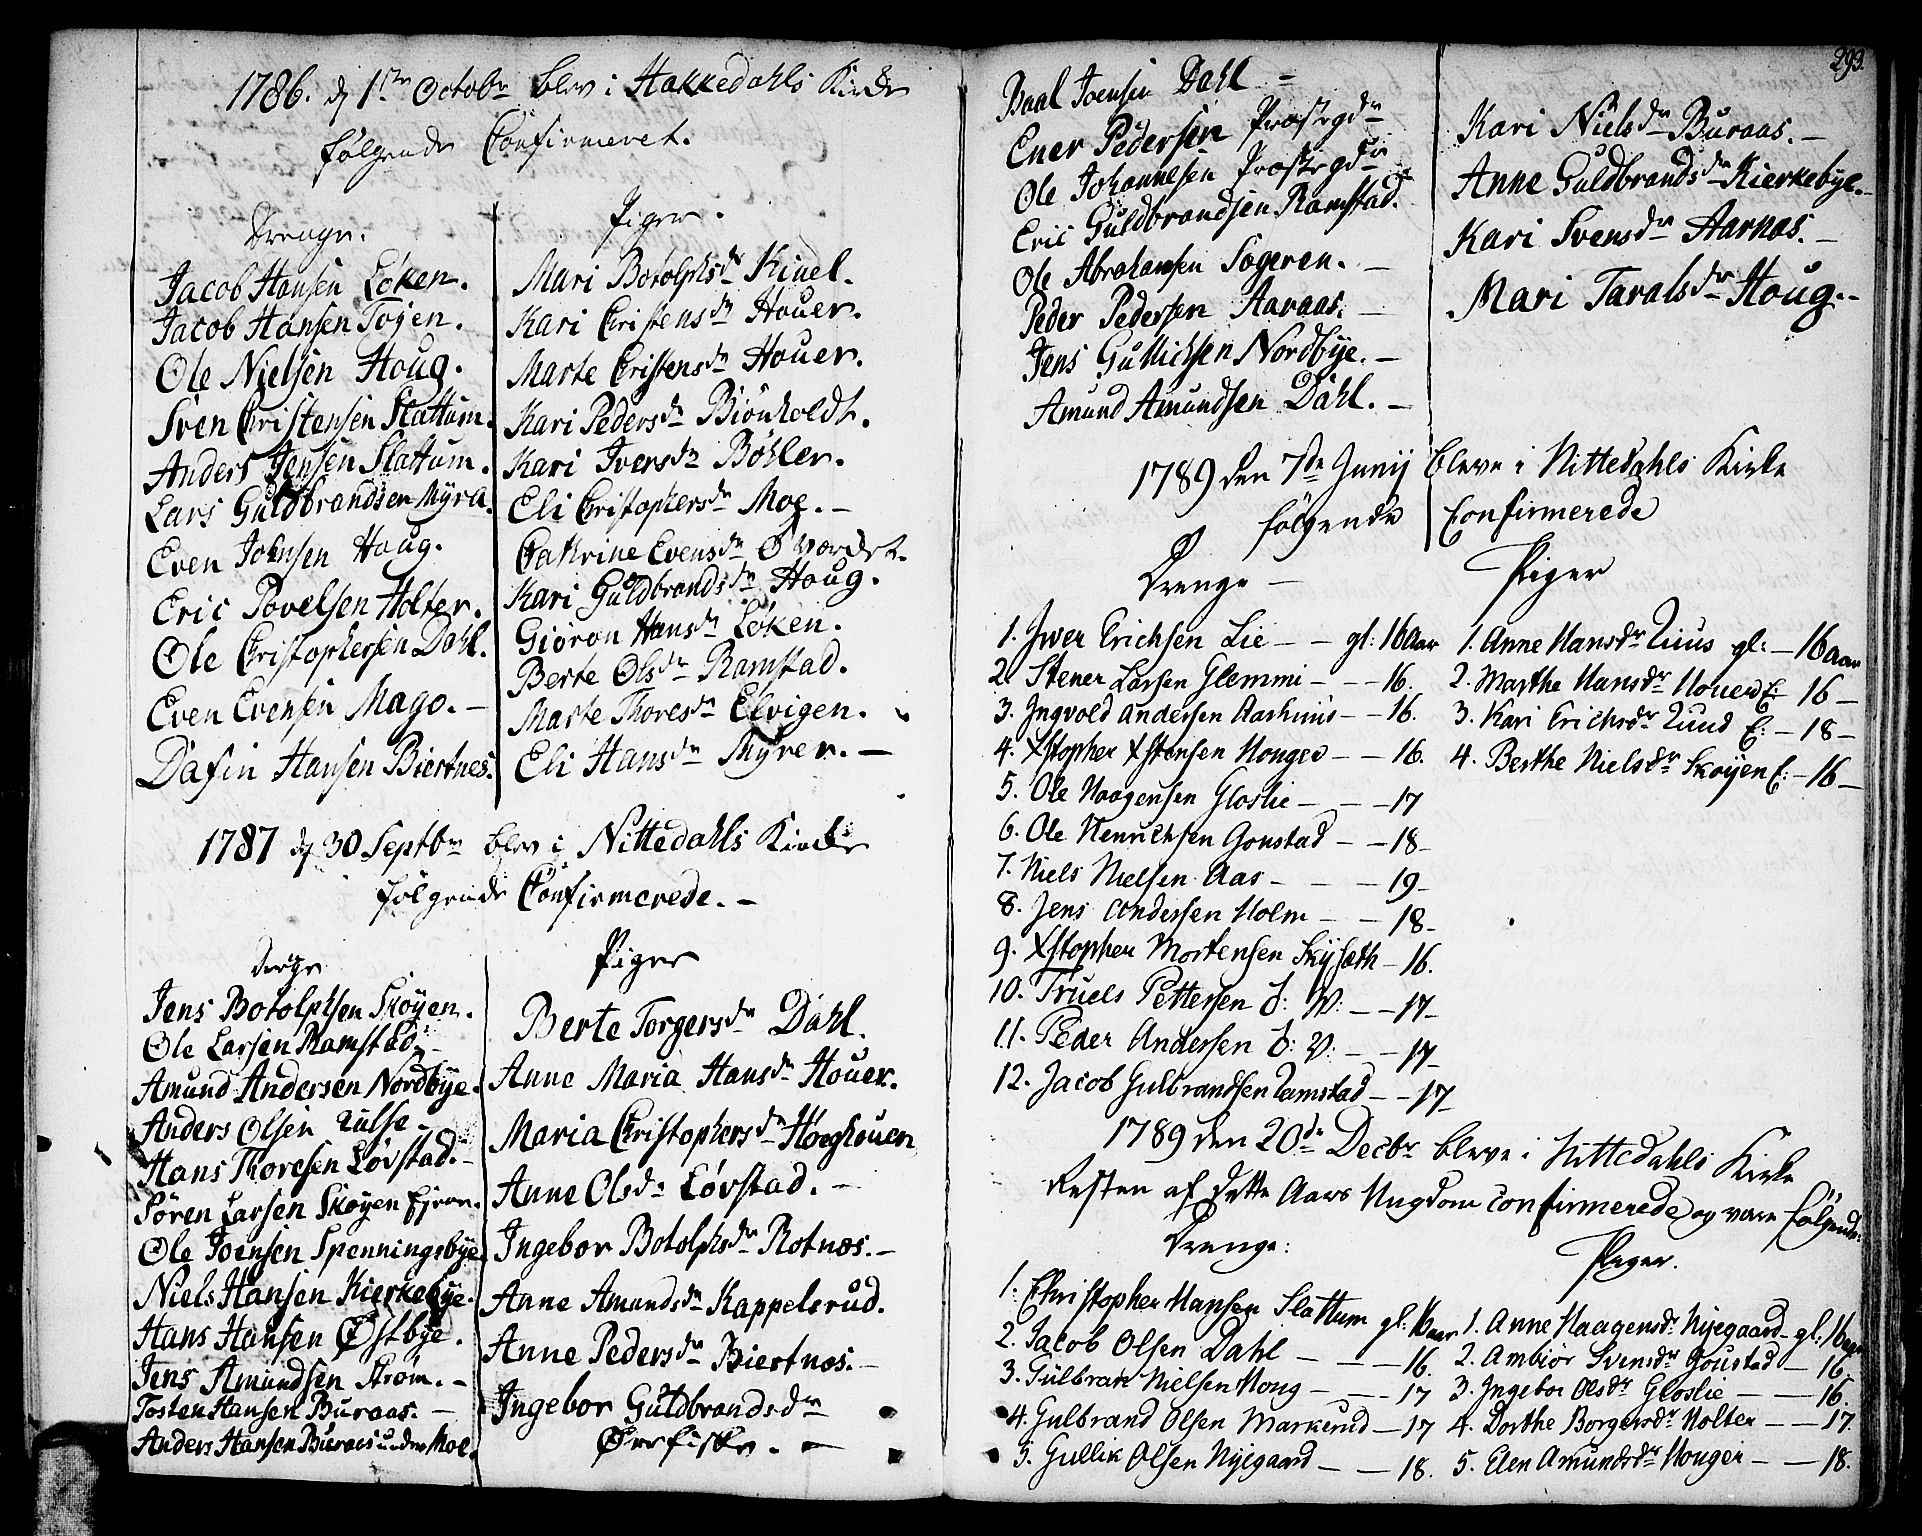 1786. d 1ste Octobr blev i Hakkedahls Kirke
følgende Confirmeret.
Drenge.
Jacob Hansen Løken.
Jacob Hansen Tøjen.
Ole Nielsen Houg.
Sven Christensen Slattum.
Anders Jensen Slattum.
Lars Guldbrandsen Myra.
Even Johnsen Houg.
Eric Povelsen Holter.
Ole Christophersen Dahl.
Even Evensen Mago. –
Dafin Hansen Biertnes.
Piger.
Mari Botolphsdr Kinel.
Kari Christensdr Houer.
Marte Cristensdr Houer.
Kari Pedersdr Biönholdt.
Kari Iversdr Böhler.
Eli Christophersdr Moe. –
Cathrine Evensdr Ø vordet.
Kari Guldbrandsdr Houg.
Giøron Hansdr Løken.
Berte Olsdr Ramstad.
Marte Thoresdr Elvigen.
Eli Hansdr Myrer. –
1787 d 30 Septbr blev i Nittedahls Kirke
følgende Confirmerede. –
Drenge
Jens Botolphsen Skøyen.
Ole Larsen Ramstad.
Amund Andersen Nordbye.
Anders Olsen Tulse.
Hans Thoresen Løvstad. –
Søren Larsen Skøyen Ejeren.
Ole Joensen Spenningsbye
Niels Hansen Kierkebye.
Hans Hansen Østbye.
Jens Amundsen Strøm. –
Tosten Hansen Buraas. –
Anders Hansen Buraas under Moe.
Piger
Berte Torgersdr Dahl.
Anne Maria Hansdr Houer.
Maria Christophersdr Høeghouen
Anne Olsdr Løvstad. –
Ingebor Botolphsdr Rotnæs. –
Anne Amundsdr Kappelsrud.
Anne Pedersdr Biertnæs. –
Ingebor Guldbrandsdr
Ørefiske. –
293.
Paal Joensen Dahl –
Ener Pedersen Præstegdn
Ole Johannesen Præstegdn
Eric Guldbrandsen Ramstad.
Ole Abrahamsen Sogeren. –
Peder Pedersen Aaraas. –
Jens Gullichsen Nordbye. –
Amund Amundsen Dahl. –
Kari Nielsdr Buraas. –
Anne Guldbrandsdr Kierkebye. –
Kari Svensdr Aarnæs. –
Mari Taralsdr Houg. –
1789 den 7de Junij bleve i Nittedahls Kirke
følgende Confirmerede
Drenge –
1. Jwer Erichsen Lie – – gl: 16 Aar
2. Stener Larsen Glemmi – – 16.
3. Ingvold Andersen Aashuus – – 16.
4. Xstopher Xstensen Houger – – 16.
5. Ole Haagensen Gloslie – – – 17
6. Ole Henrichsen Gonstad – – 18 –
7. Niels Nielsen Aas – – – 19 –
8. Jens Andersen Holm – – 18 –
9. Xstopher Mortensen Skyseth – 16.
10. Truels Pettersen O: V: – – 17 –
11. Peder Andersen O: V: – – 17 –
12. Jacob Gulbrandsen Ramstad – – 17 –
Piger
1. Anne Hansdr Ruus gl: – 16 aar
2. Marthe Hansdr Houer E: 16 –
3. Kari Erichsdr Rund E: – 18 –
4. Berthe Nielsdr Skøyen E: – 16 –
1789 den 20de Decbr bleve i Nittedahls Kirke
Resten af dette Aars Ungdom confirmerede og vare følgende:
Drenge:
1. Christopher Hansen Slattum gl: 16 aar
2. Jacob Olsen Dahl – – – 16.
3. Gulbran Nielsen Houg – – – 17
4. Gulbrand Olsen Markerud – 17
5. Gullik Olsen Nyegaard – – 18.
Piger.
1. Anne Haagensdr Nyegaard – gl: 16 aar
2. Ambiør Svensdr Goustad – 16.
3. Ingebor Olsdr Gloslie – – 16.
4. Dorthe Borgersdr Holter – – 17.
5. Elen Amundsdr Houger – – 18.